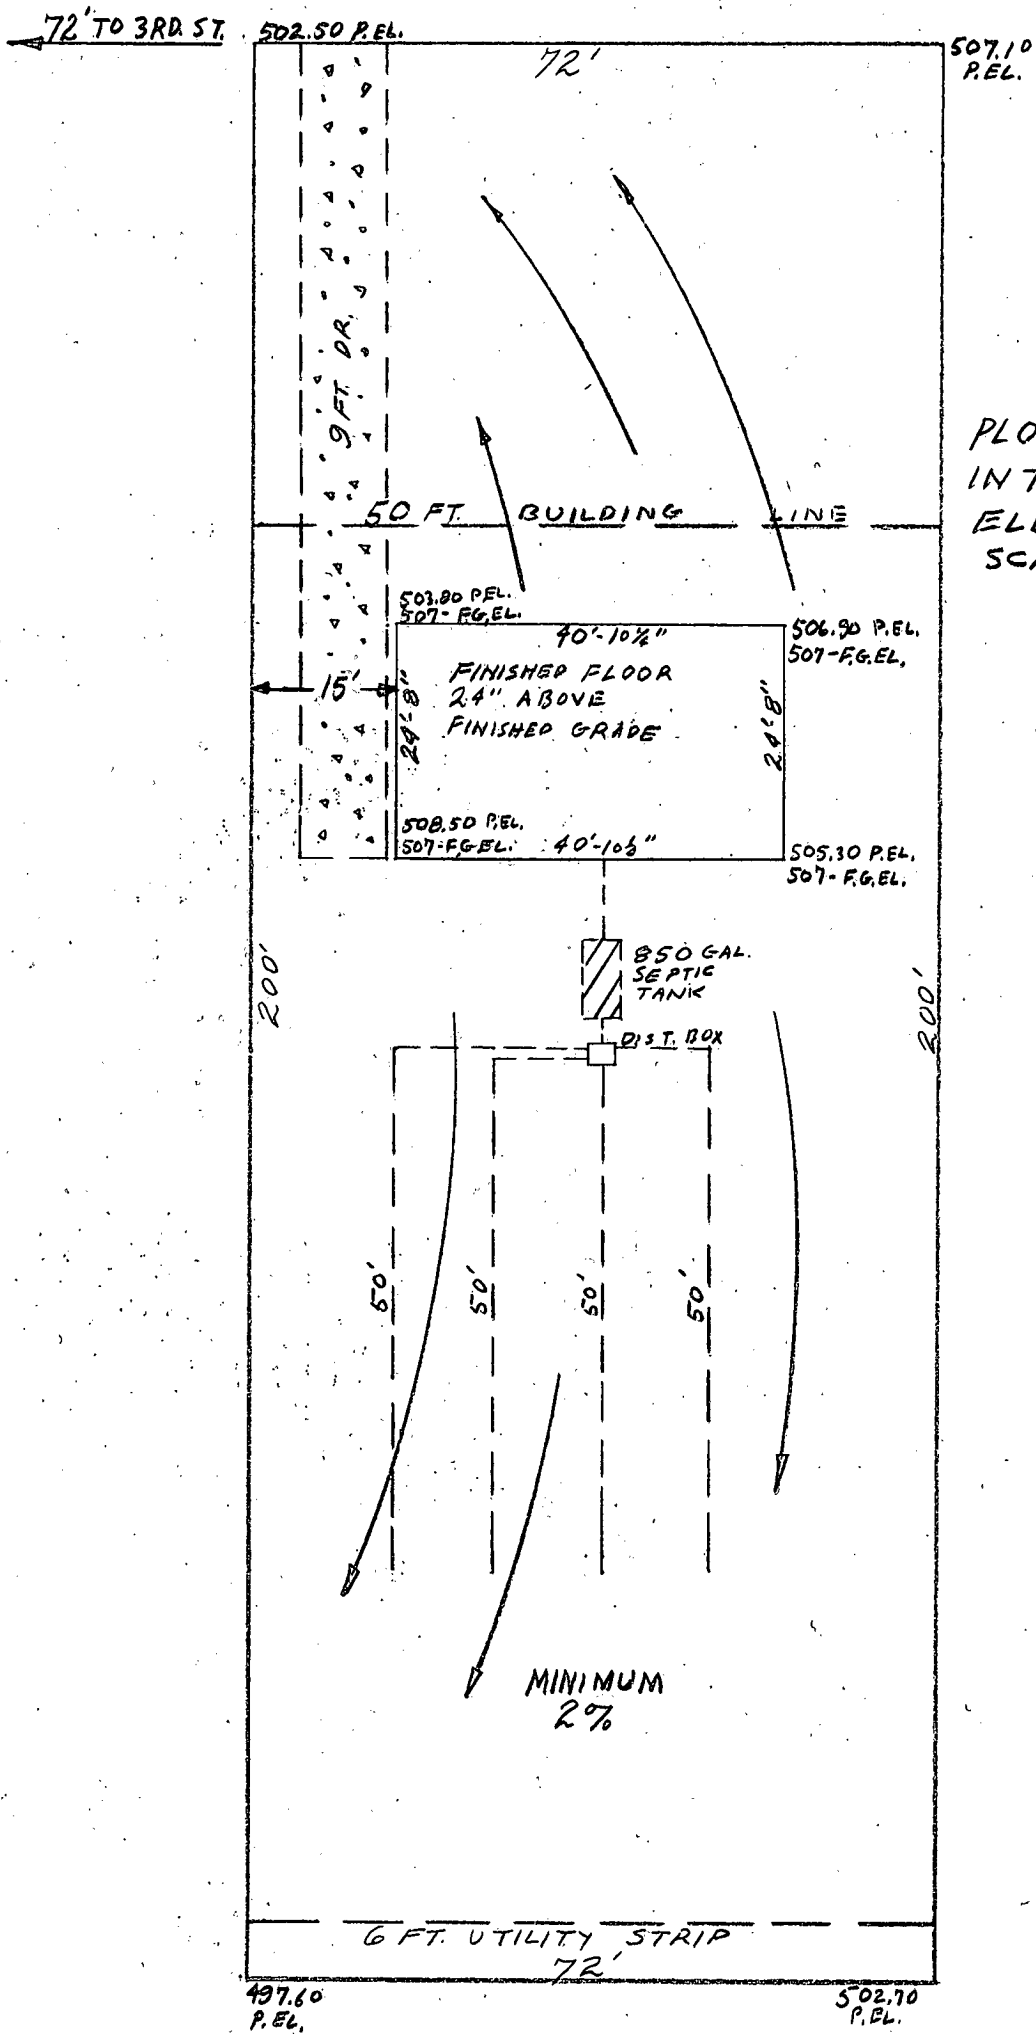 72' TO 3RD. ST.
502.50 P.EL.
72'
507.10
P.EL.
9 FT. DR.
PLO
IN T
ELL
SCA
50 FT. BUILDING LINE
503.80 P.EL.
507-F.G.EL.
40'-10½"
506.90 P.EL.
507-F.G.EL.
15'
24'-8"
FINISHED FLOOR
24" ABOVE
FINISHED GRADE
24'-8"
508.50 P.EL.
507-F.G.EL.
40'-10½"
505.30 P.EL.
507-F.G.EL.
200'
850 GAL.
SEPTIC
TANK
200'
DIST. BOX
50'
50'
50'
50'
MINIMUM
2%
6 FT. UTILITY STRIP
72'
497.60
P.EL.
502.70
P.EL.